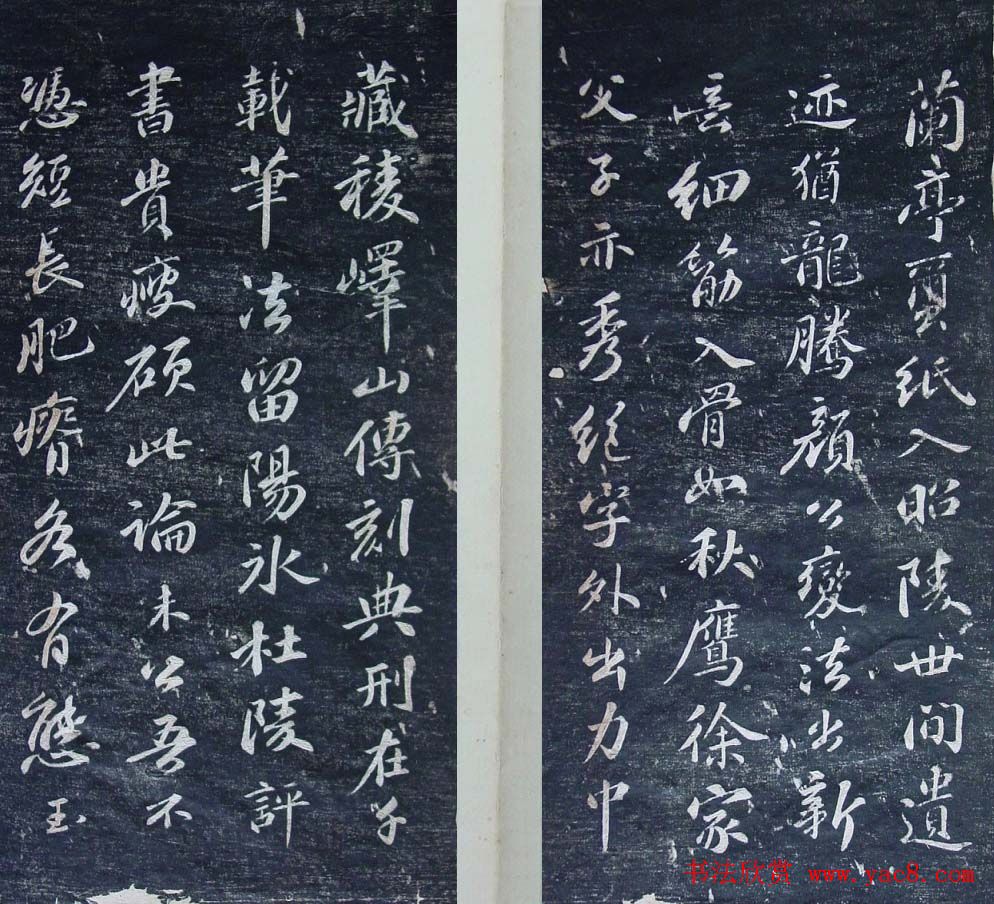 蘭亭繭紙入昭陵世間遺
迹猶龍騰顏公變法出新
意細筋入骨如秋鷹徐家
父子亦秀絕字外出力中
藏稜嶧山傳刻典刑在千
載筆法留陽冰杜陵評
書貴瘦硬此論未公吾不
憑短長肥瘠各有態玉
书法欣赏 www.yac8.com